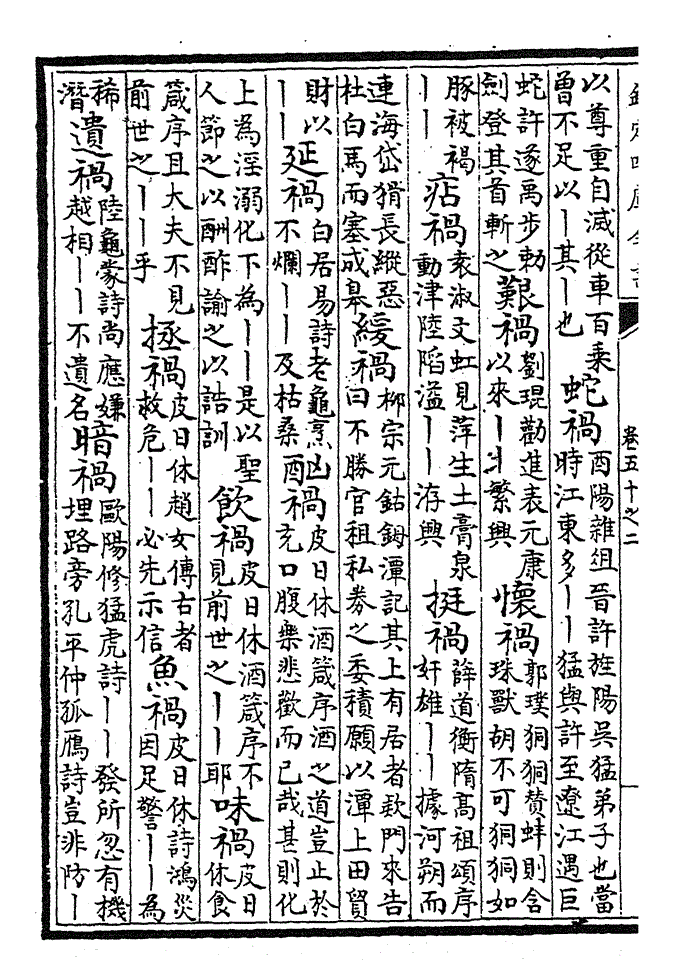 欽定四庫全書
卷五十之二
以尊重自滅從車百乘
曾不足以丨其丨也
蛇禍
酉陽雜俎晉許旌陽吳猛弟子也當
時江東多丨丨猛與許至遼江遇巨
蛇許遂禹步勅
劍登其首斬之
艱禍
劉琨勸進表元康
以來丨丨繁興
懷禍
郭璞狪狪贊蚌則含
珠獸胡不可狪狪如
豚被褐
丨丨
痁禍
袁淑文虹見萍生土膏泉
動津陸滔溢丨丨洊興
挺禍
薛道衡隋高祖頌序
奸雄丨丨據河朔而
連海岱猾長縱惡
杜白馬而塞成皋
緩禍
柳宗元鈷鉧潭記其上有居者欵門來告
曰不勝官租私券之委積願以潭上田貿
財以
丨丨
延禍
白居易詩老龜烹
不爛丨丨及枯桑
酗禍
皮日休酒箴序酒之道豈止於
充口腹樂悲歡而已哉甚則化
上為淫溺化下為丨丨是以聖
人節之以酬酢諭之以誥訓
飲禍
皮日休酒箴序不
見前世之丨丨耶
味禍
皮日
休食
箴序且大夫不見
前世之丨丨乎
拯禍
皮日休趙女傳古者
救危丨丨必先示信
魚禍
皮日休詩鴻災
因足警丨丨為
稀
潛
遺禍
陸龜蒙詩尚應嫌
越相丨丨不遺名
暗禍
歐陽修猛虎詩丨丨發所忽有機
埋路旁孔平仲孤鴈詩豈非防丨